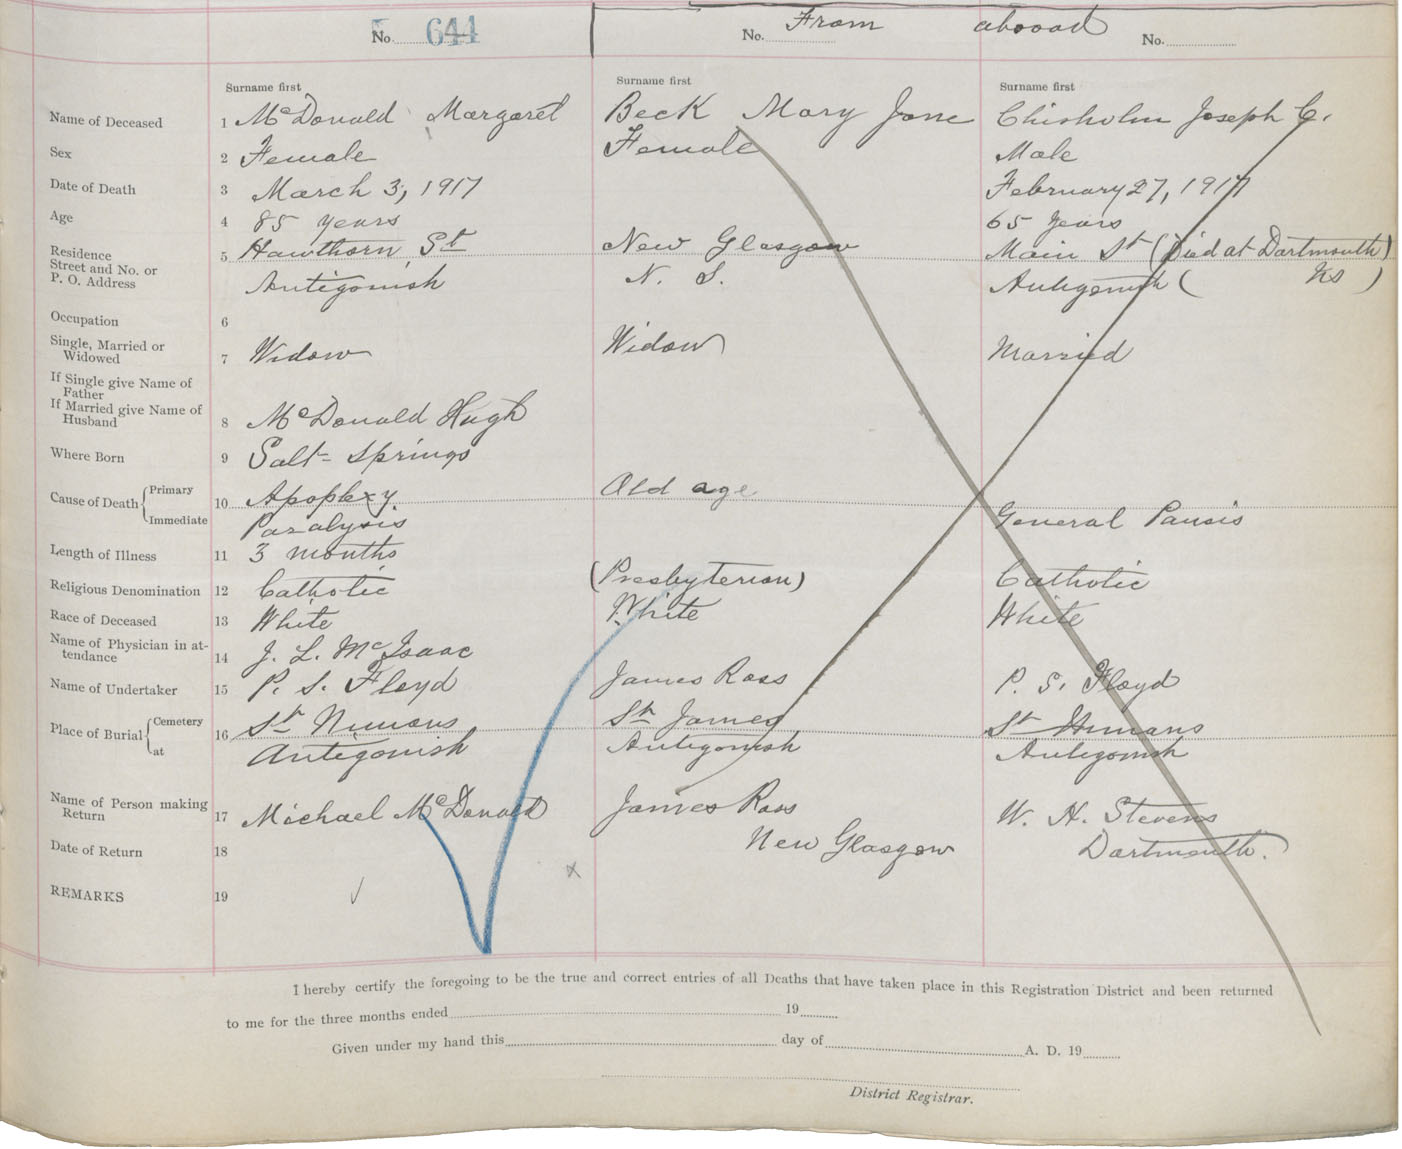 No. 644
No. From abooad
No.
Surname first
Surname first
Surname first
Name of Deceased 1 McDonald Margaret Beck Mary Jane Chisholm Joseph C.
Sex 2 Female Female Male
Date of Death 3 March 3, 1917 February 27, 1917
Age 4 85 years 65 years
Residence
Street and No. or
P. O. Address
5 Hawthorn St New Glasgow Main St (Died at Dartmouth)
Antigonish N. S. Antigonish ( NS )
Occupation 6
Single, Married or
Widowed 7 Widow Widow Married
If Single give Name of
Father
If Married give Name of
Husband 8 McDonald Hugh
Where Born 9 Salt-Springs
Cause of Death Primary 10 Apoplexy. Old age
Immediate Paralysis General Pausis
Length of Illness 11 3 months
Religious Denomination 12 Catholic (Presbyterian) Catholic
Race of Deceased 13 White White White
Name of Physician in at-
tendance 14 J. L. McIsaac
Name of Undertaker 15 P. S. Floyd James Ross P. S. Floyd
Place of Burial Cemetery 16 St Ninians St James St
at Antigonish Antigonish Antigonish
Name of Person making
Return 17 Michael McDonald James Ross W. H. Stevens
Date of Return 18 New Glasgow Dartmouth.
REMARKS 19
I hereby certify the foregoing to be the true and correct entries of all Deaths that have taken place in this Registration District and been returned
to me for the three months ended 19
Given under my hand this day of A. D. 19
District Registrar.